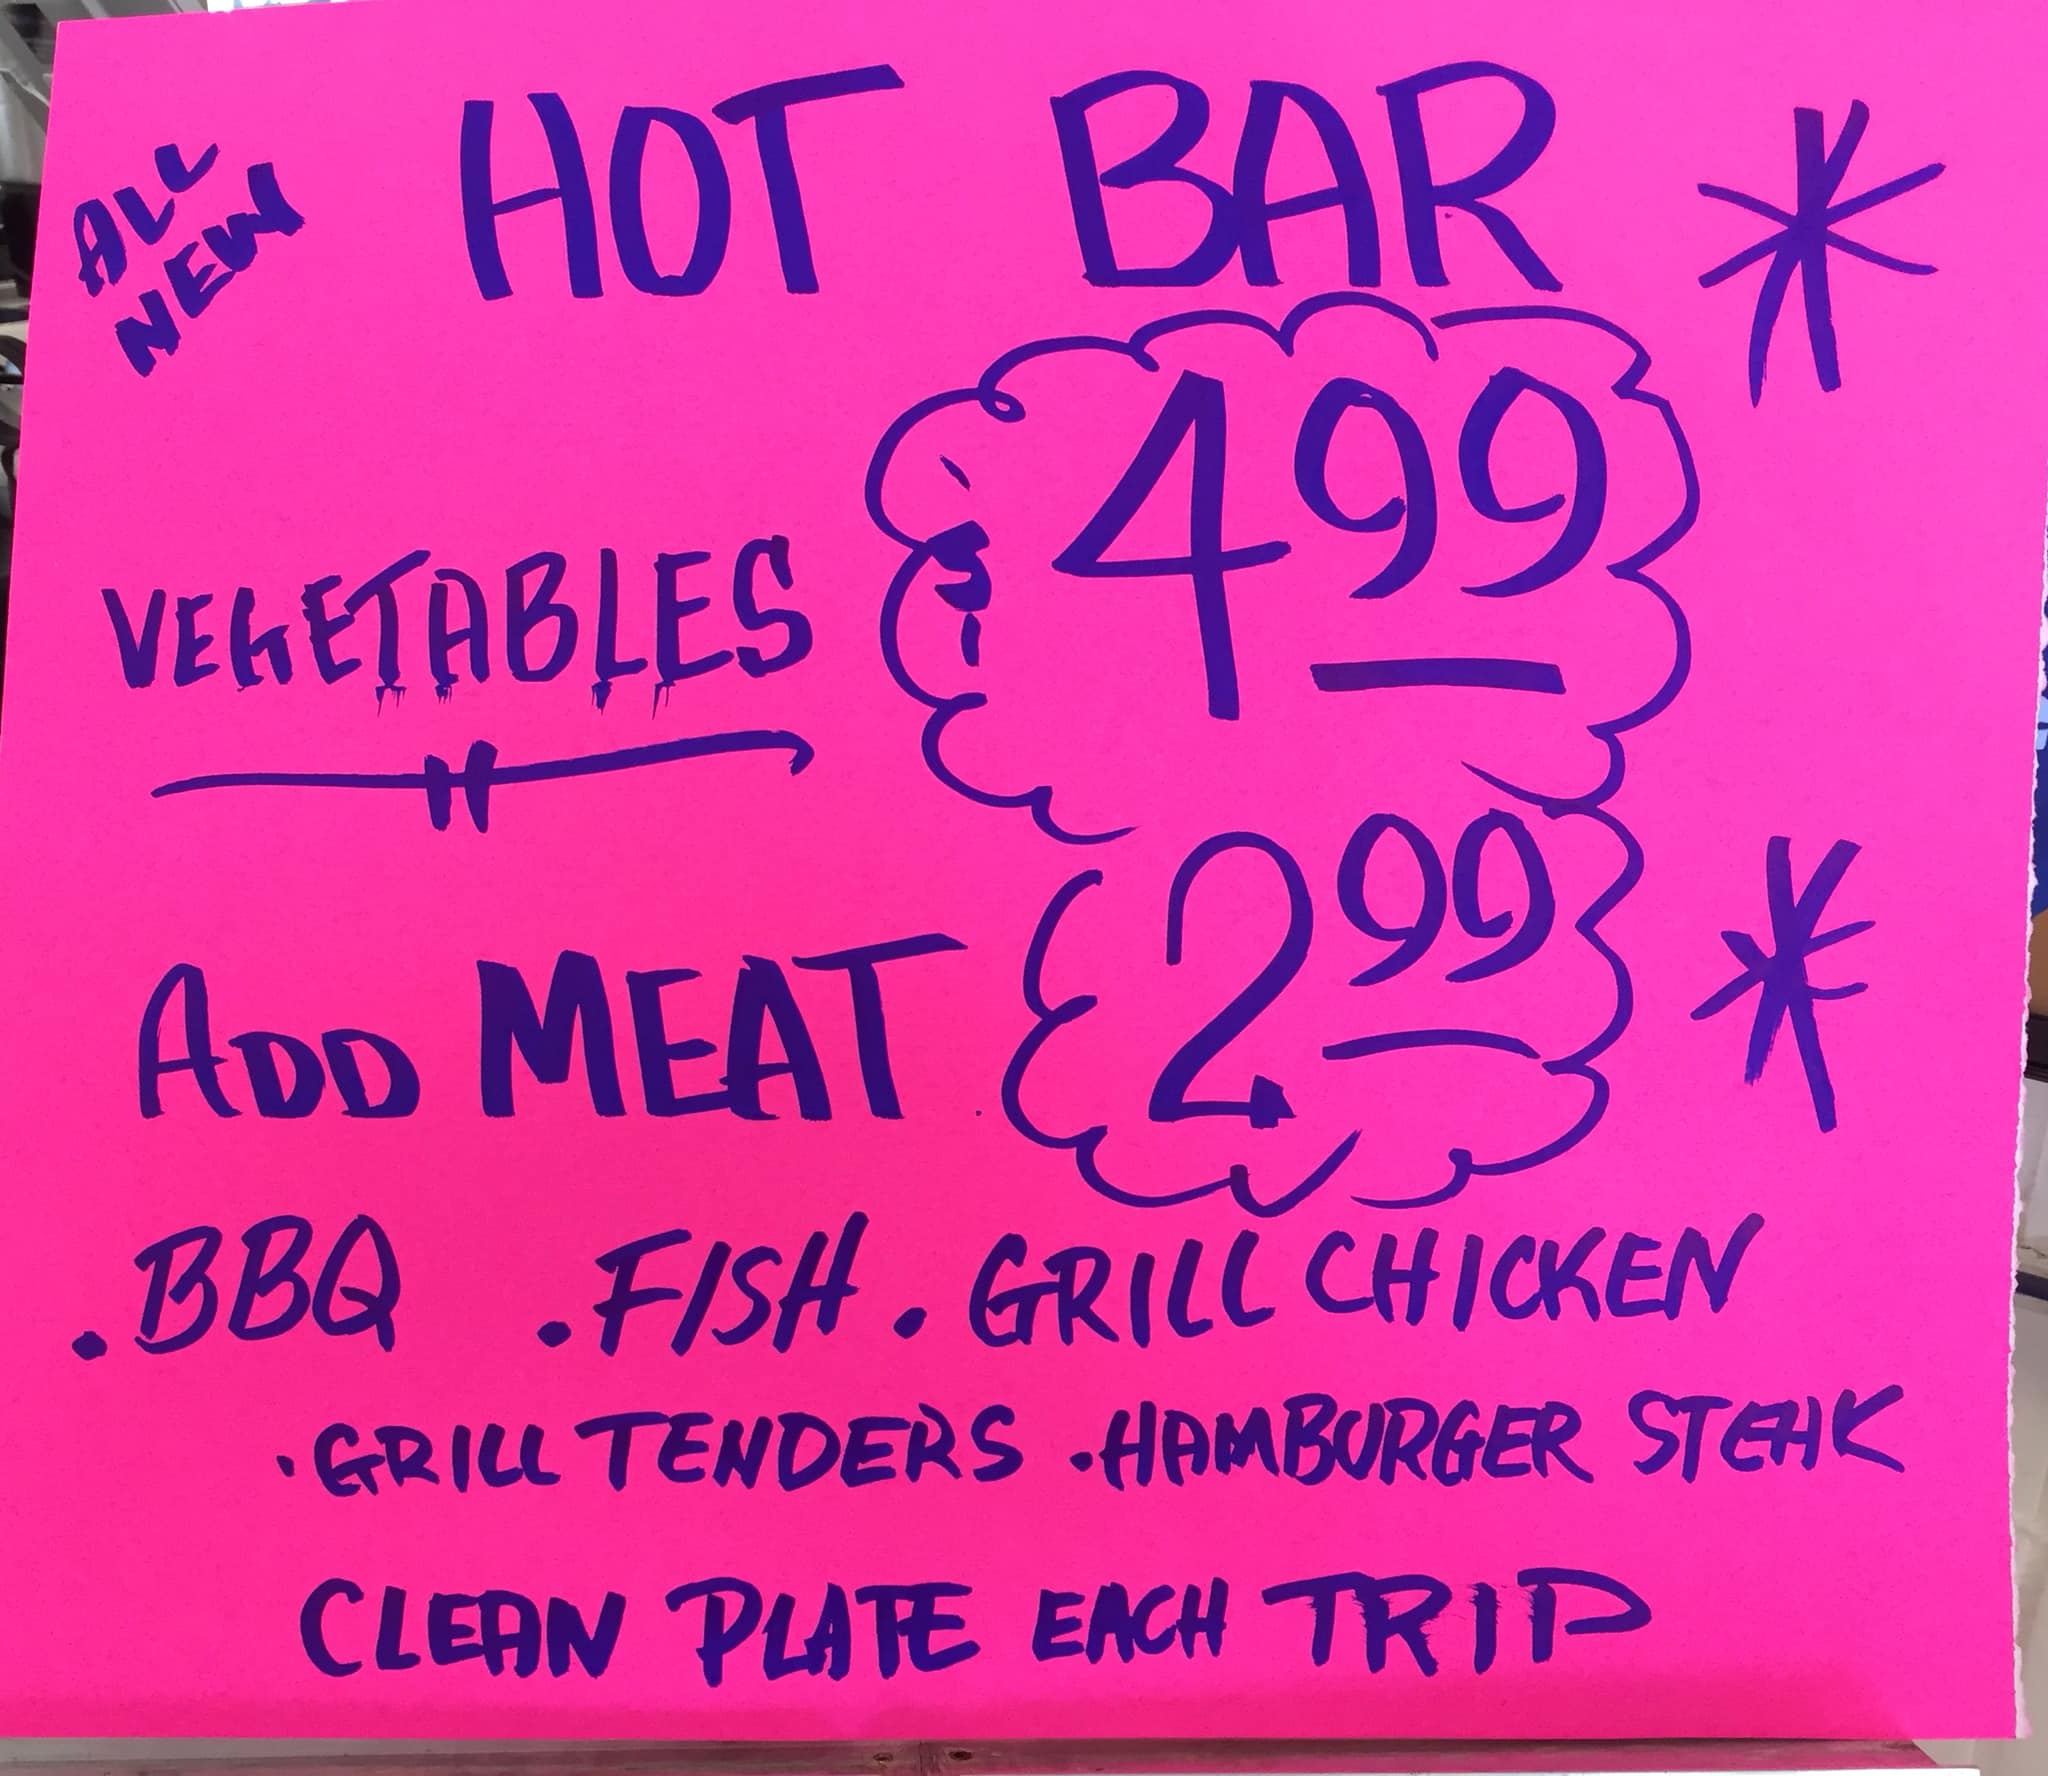 ALL NEW
HOT BAR
VEGETABLES $4.99
ADD MEAT 2.99
. BBQ . FISH . GRILL CHICKEN
. GRILL TENDERS . HAMBURGER STEAK
CLEAN PLATE EACH TRIP